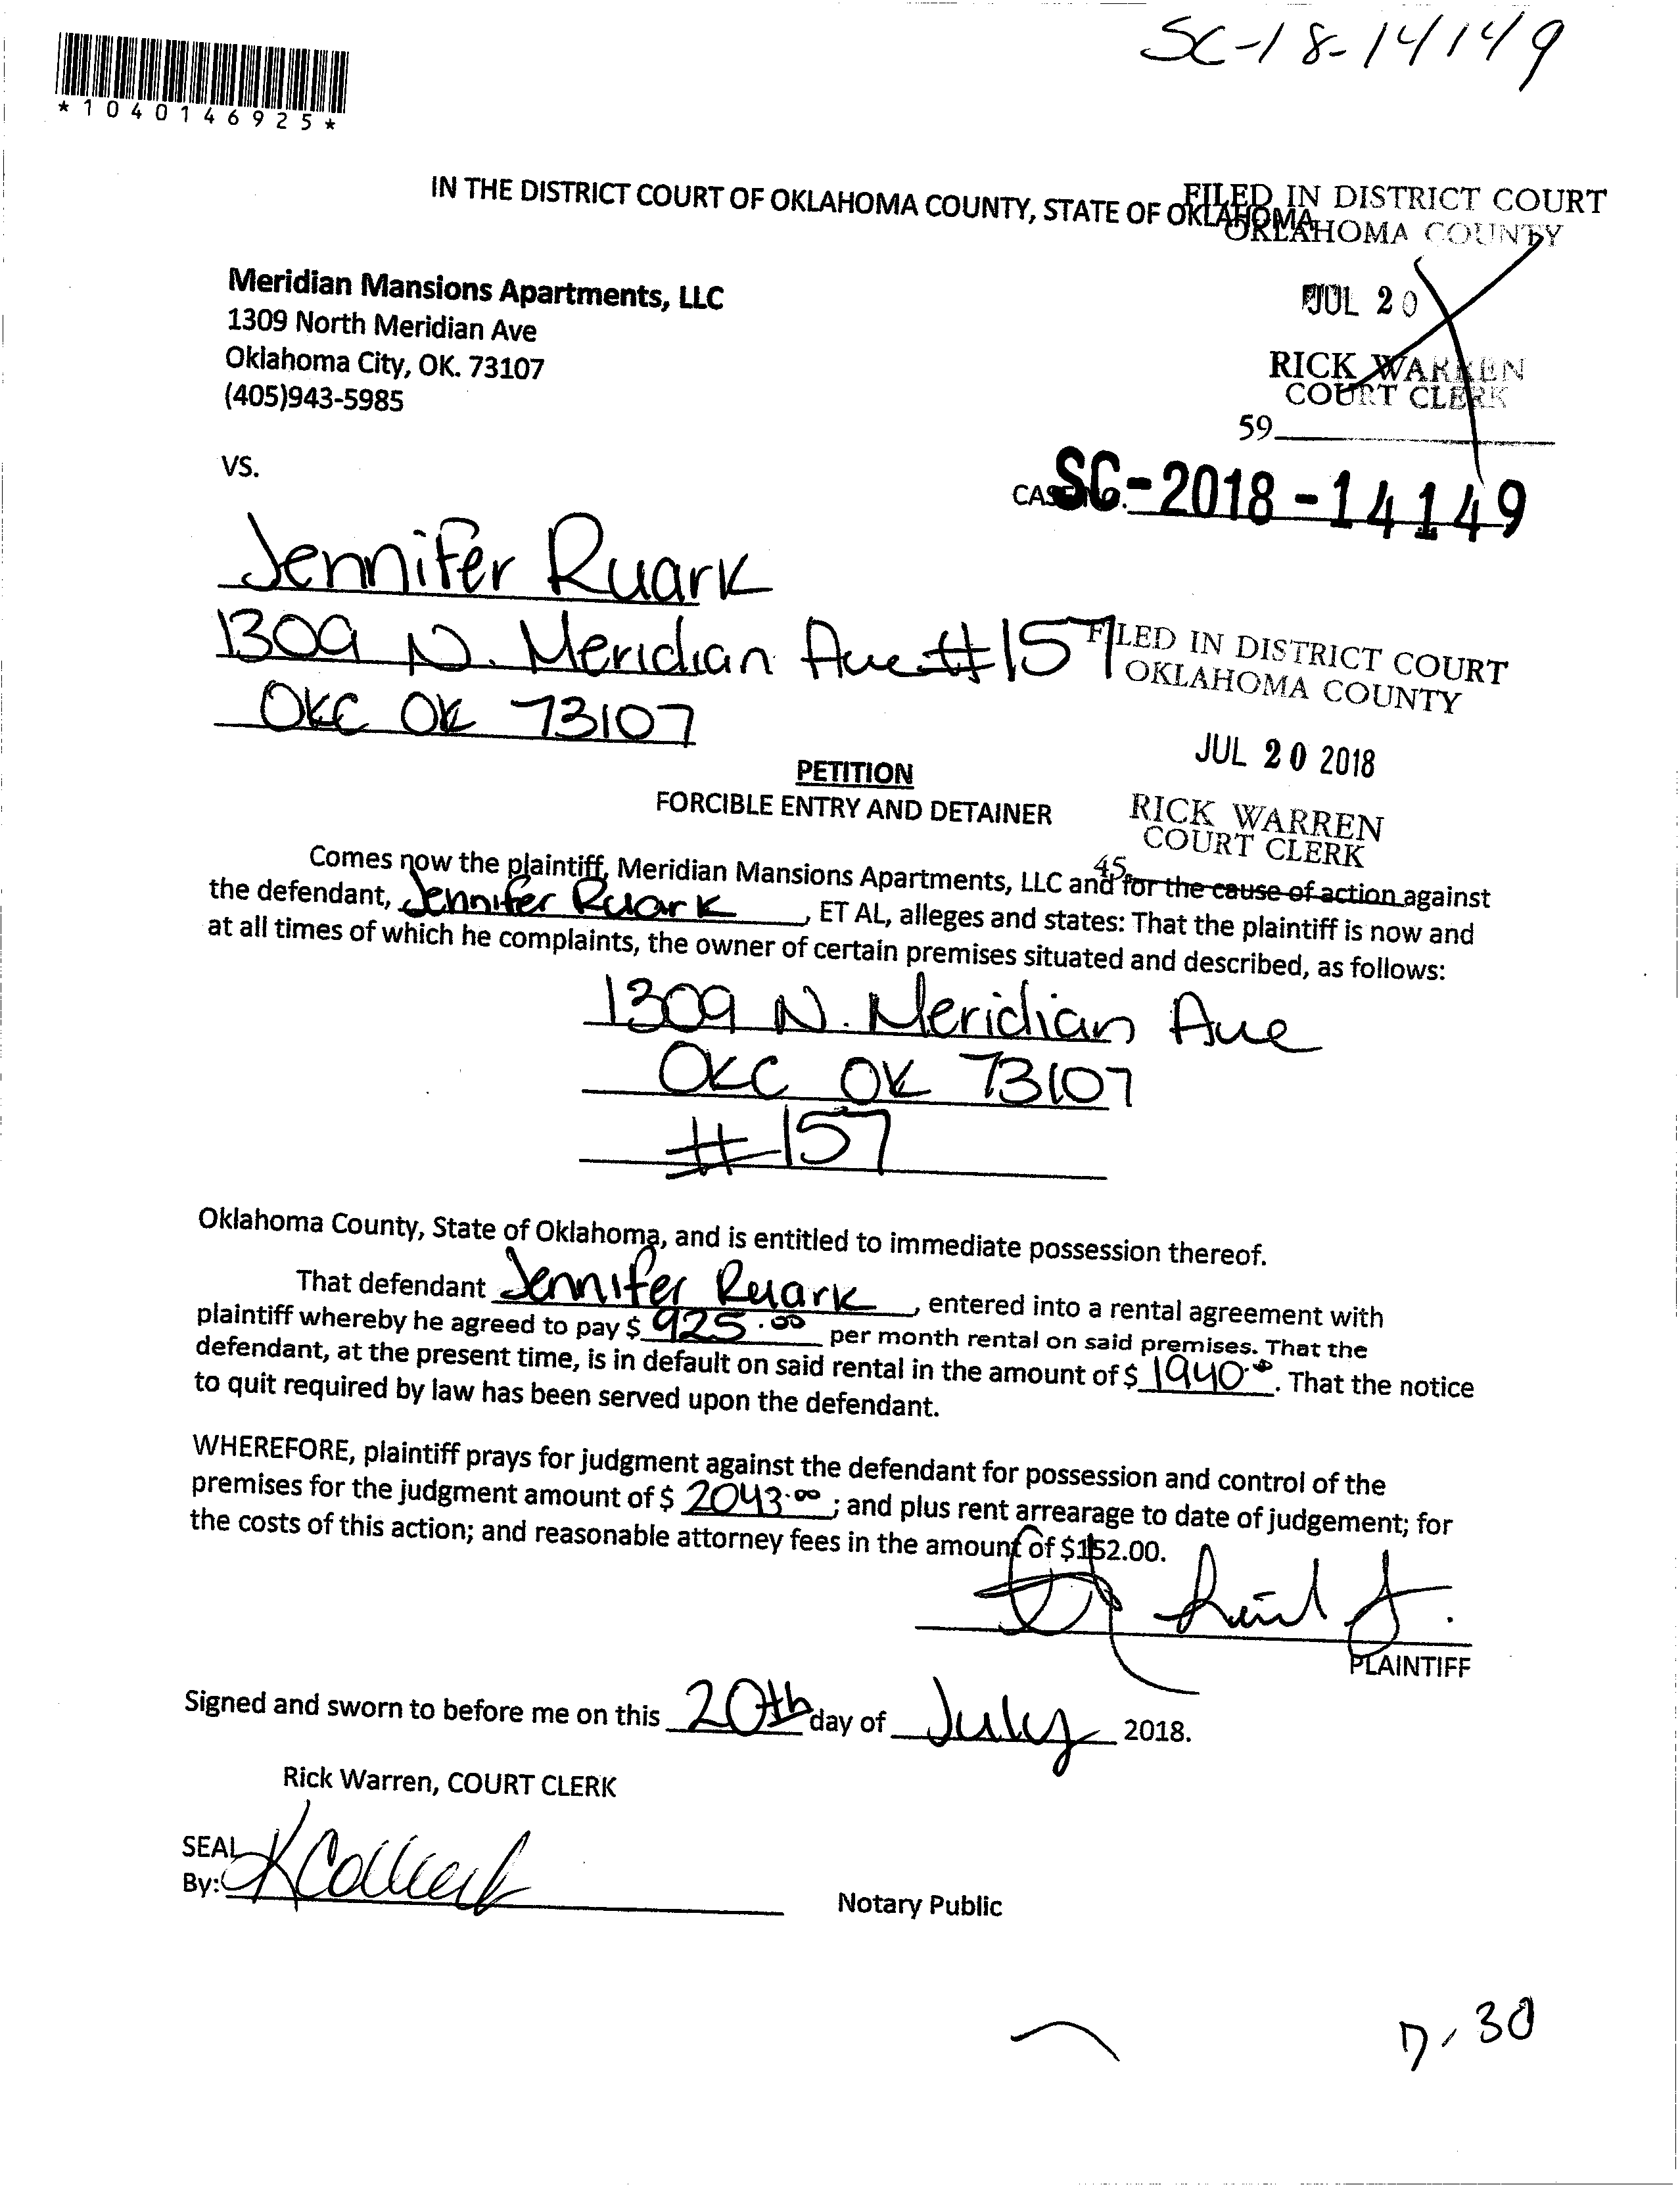 SC-18-14149
*1040146925*
IN THE DISTRICT COURT OF OKLAHOMA COUNTY, STATE OF OKLAHOMA
FILED IN DISTRICT COURT
OKLAHOMA COUNTY
Meridian Mansions Apartments, LLC
1309 North Meridian Ave
Oklahoma City, OK. 73107
(405)943-5985
JUL 20
RICK WARREN
COURT CLERK
59
VS.
CASE NO. SC-2018-14149
Jennifer Ruark
1309 N. Meridian Ave #157
OKC OK 73107
FILED IN DISTRICT COURT
OKLAHOMA COUNTY
JUL 20 2018
RICK WARREN
COURT CLERK
45
PETITION
FORCIBLE ENTRY AND DETAINER
Comes now the plaintiff, Meridian Mansions Apartments, LLC and for the cause of action against
the defendant, Jennifer Ruark, ET AL, alleges and states: That the plaintiff is now and
at all times of which he complaints, the owner of certain premises situated and described, as follows:
1309 N. Meridian Ave
OKC OK 73107
#157
Oklahoma County, State of Oklahoma, and is entitled to immediate possession thereof.
That defendant Jennifer Ruark, entered into a rental agreement with
plaintiff whereby he agreed to pay $ 925.00 per month rental on said premises. That the
defendant, at the present time, is in default on said rental in the amount of $ 1940.00. That the notice
to quit required by law has been served upon the defendant.
WHEREFORE, plaintiff prays for judgment against the defendant for possession and control of the
premises for the judgment amount of $ 2043.00; and plus rent arrearage to date of judgement; for
the costs of this action; and reasonable attorney fees in the amount of $152.00.
PLAINTIFF
Signed and sworn to before me on this 20th day of July 2018.
Rick Warren, COURT CLERK
SEAL
By:
Notary Public
7-30